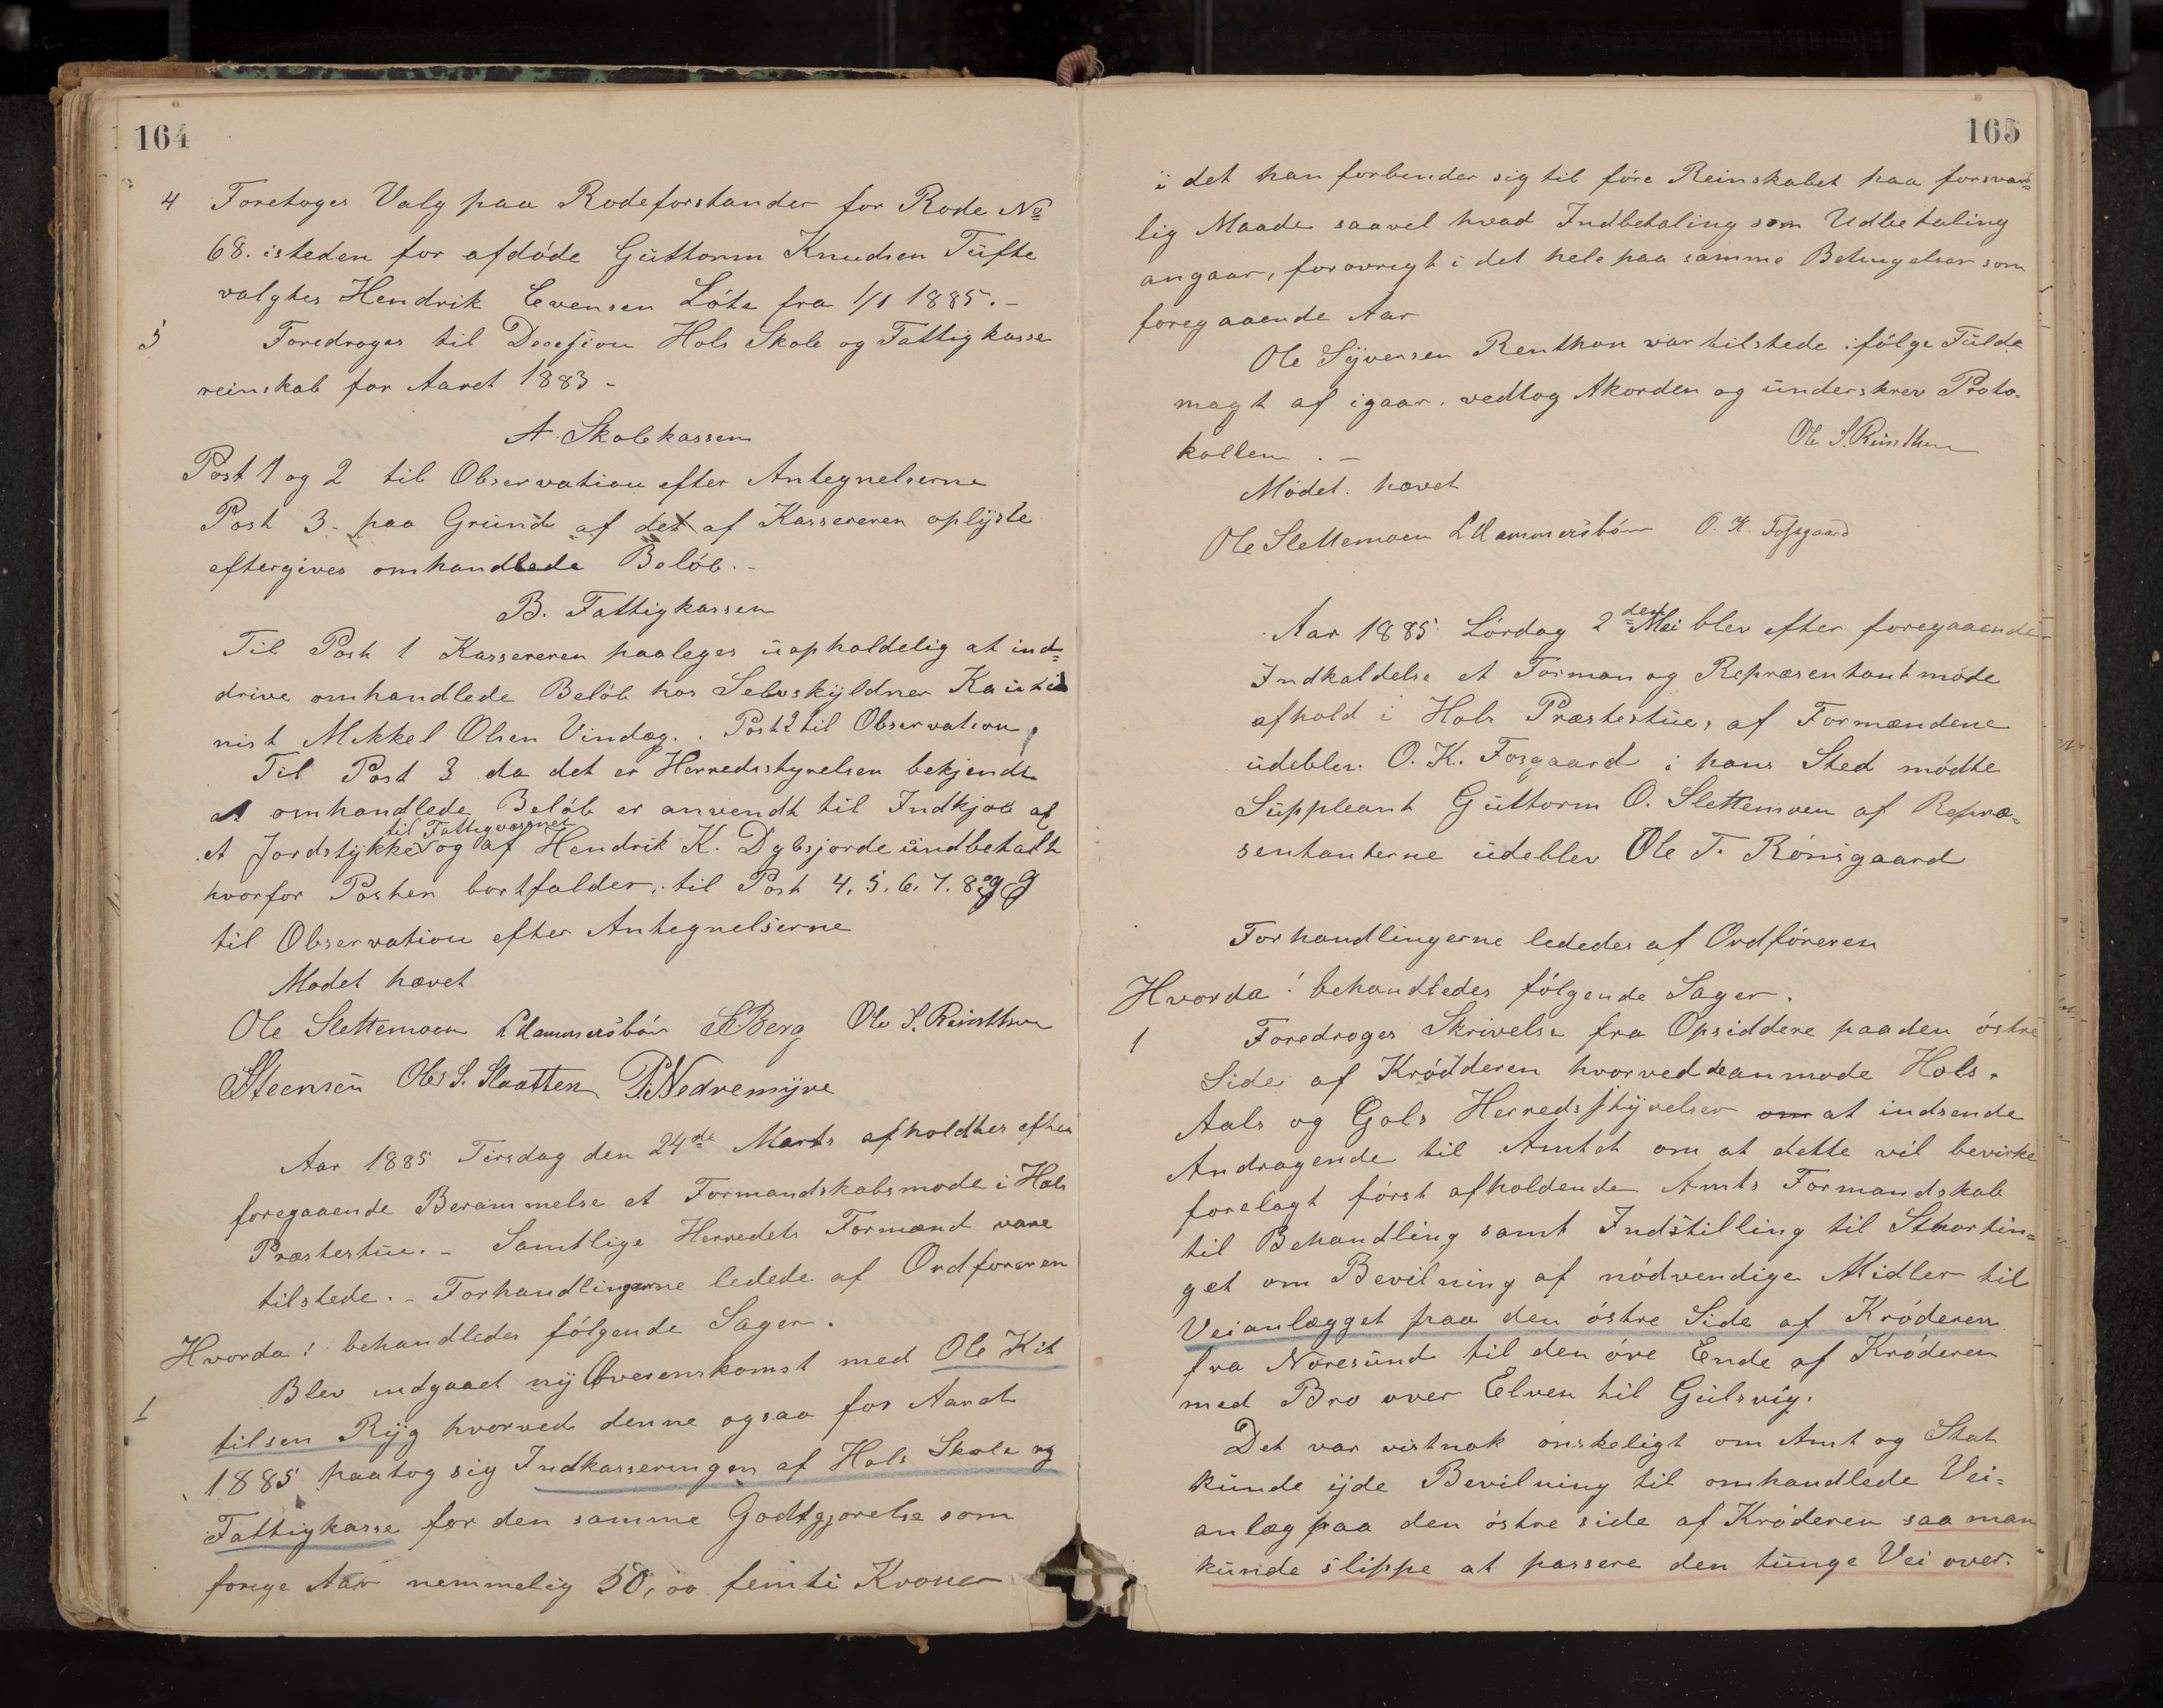 164
4 Foretoges Valg paa Rodeforstander for Rode No
68. isteden for afdøde Guttorm Knudsen Tufte
valgtes Hendrik Evensen Løte fra 1/1 1885.-
5 Foredroges til Desesjion Hols Skole og Fattigkasse
reinskab for Aaret 1883 -
A. Skolekassen
Post 1 og 2 til Observation efter Antegnelserne
Post 3- paa Grund af det af Kassereren oplyste
eftergives omhandlede Beløb.-
B. Fattigkassen
Til Post 1 Kassereren paaleges uopholdelig at ind=
drive omhandlede Beløb hos Selvskyldner
nist Mekkel Olsen Vindeg. . Post 2 til Observation
Til Post 3 da det er Herredsstyrelsen bekjendt
at omhandlede Beløb er anvendt til Indkjøb af
et Jordstykke til Fattigvæsenet og af Hendrik K. Dybsjorde undbetalt
hvorfor Posten bortfalder. til Post 4. 5. 6. 7. 8 og 9
til Observation efter Antegnelserne
Mødet hævet
Ole Slettemoen L Hammersbøn S Berg Ole S. Reinthon
S Steensen Ole S. Slaatten P. Nedremyre
Aar 1885 Tirsdag den 24de Marts afholdtes efter
foregaaende Berammelse et Formandskabsmøde i Hols
Præstestue. - Samtlige Herredets Formænd vare
tilstede. - Forhandlingerne ledede af Ordføreren
Hvorda! behandledes følgende Sager.
1 Blev indgaaet ny Overenskomst med Ole Kit
tilsen Ryg hvorved denne ogsaa for Aaret
1885 paatog sig Indkasseringen af Hols Skole og
Fattigkasse for den samme Godtgjørelse som
forige Aar nemmelig 50,00 femti Kroner
165
i det han forbinder sig til føre Reinskabet paa forsvar=
lig Maade saavel hvad Indbetaling som Udbetaling
angaar, forøvrigt i det hele paa samme Betingelser som
foregaaende Aar
Ole Syversen Renthon var tilstede ifølge Fulde
magt af igaar. vedtog Akorden og underskrev Proto-
kollen . - Ole S. Reinthon
Mødet hævet
Ole Slettemoen L Hammersbøn O. K. Fossgaard
Aar 1885 Lørdag 2den Mei blev efter foregaaende
Indkaldelse et Forman og Repræsentantmøde
afhold i Hols Præstestue, af Formændene
udeblev. O. K. Fosgaard i hans Sted mødte
Suppleant Guttorm O. Slettemoen af Repræ=
sentanterne udeblev Ole T. Rønsgaard
Forhandlingerne lededes af Ordføreren
Hvorda! behandledes følgende Sager.
1 Foredroges Skrivelse fra Opsiddere paa den østre
Side af Krødderen hvorved de anmode Hols.
Aals og Gols Herredsstyrelser om at indsende
Andragende til Amtet om at dette vil bevirke
forelagt først afholdende Amts Formandskab
til Behandling samt Indstilling til Stortin=
get om Bevilning af nødvendige Midler til
Veianlægget paa den østre Side af Krøderen
fra Noresund til den øvre Ende af Krøderen
med Bro over Elven til Gulsvig.
Det var vistnok ønskeligt om Amt og Stat
kunde yde Bevilning til omhandlede Vei=
anlæg paa den østre side af Krøderen saa man
kunde slippe at passere den tunge Vei over.